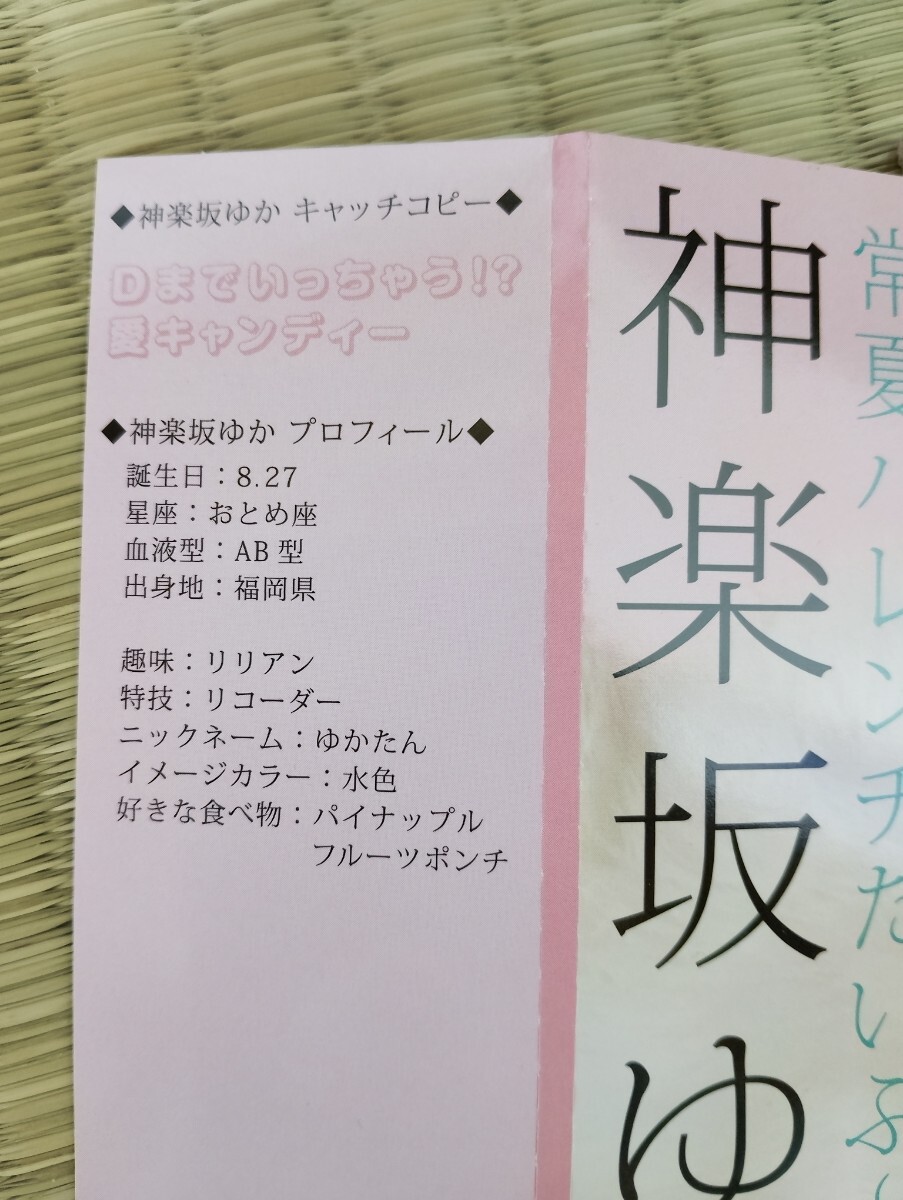 ◆神楽坂ゆか キャッチコピー◆
Dまでいっちゃう!?
愛キャンディー
◆神楽坂ゆか プロフィール◆
誕生日：8.27
星座：おとめ座
血液型：AB型
出身地：福岡県
趣味：リリアン
特技：リコーダー
ニックネーム：ゆかたん
イメージカラー：水色
好きな食べ物：パイナップル
フルーツポンチ
常夏ハレンチだいぶ
神楽坂ゆ